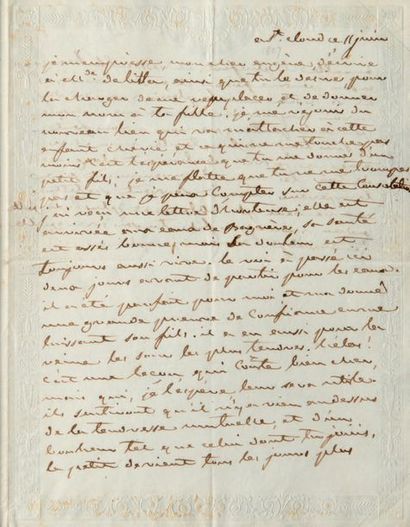 a St Cloud ce 11 juin
je m'empresse, mon cher eugène, d'écrire
à Mde de litta, ainsi que tu le desire, pour
la charger de me remplacer et de donner
mon nom a ta fille. je me rejouis du
nouveau lien qui va m'attacher à cette
enfant cherie et ce qui ne me touche pas
moins c'est l'esperance que tu me donne d'un
petit fils, je me flatte que tu ne me trompes
pas et que je peux compter sur cette consolation
j'ai reçu une lettre d'hortense, elle est
arrivée aux eaux de Bagnères, sa santé
est assés bonne, mais sa douleur est
toujours aussi vive. le roi a passé ici
deux jours avant de partir pour les eaux.
il a été parfait pour moi et m'a donné
une grande preuve de confiance en me
laissant son fils. il a eu aussi pour la
reine les soins les plus tendres. helas!
c'est une leçon qui coûte bien cher,
mais qui, je l'espère leur sera utile
ils sentiront qu'il n'y a rien au dessus
de la tendresse mutuelle, et d'un
bonheur tel que celui dont tu jouis.
le petit devient tous les jours plus